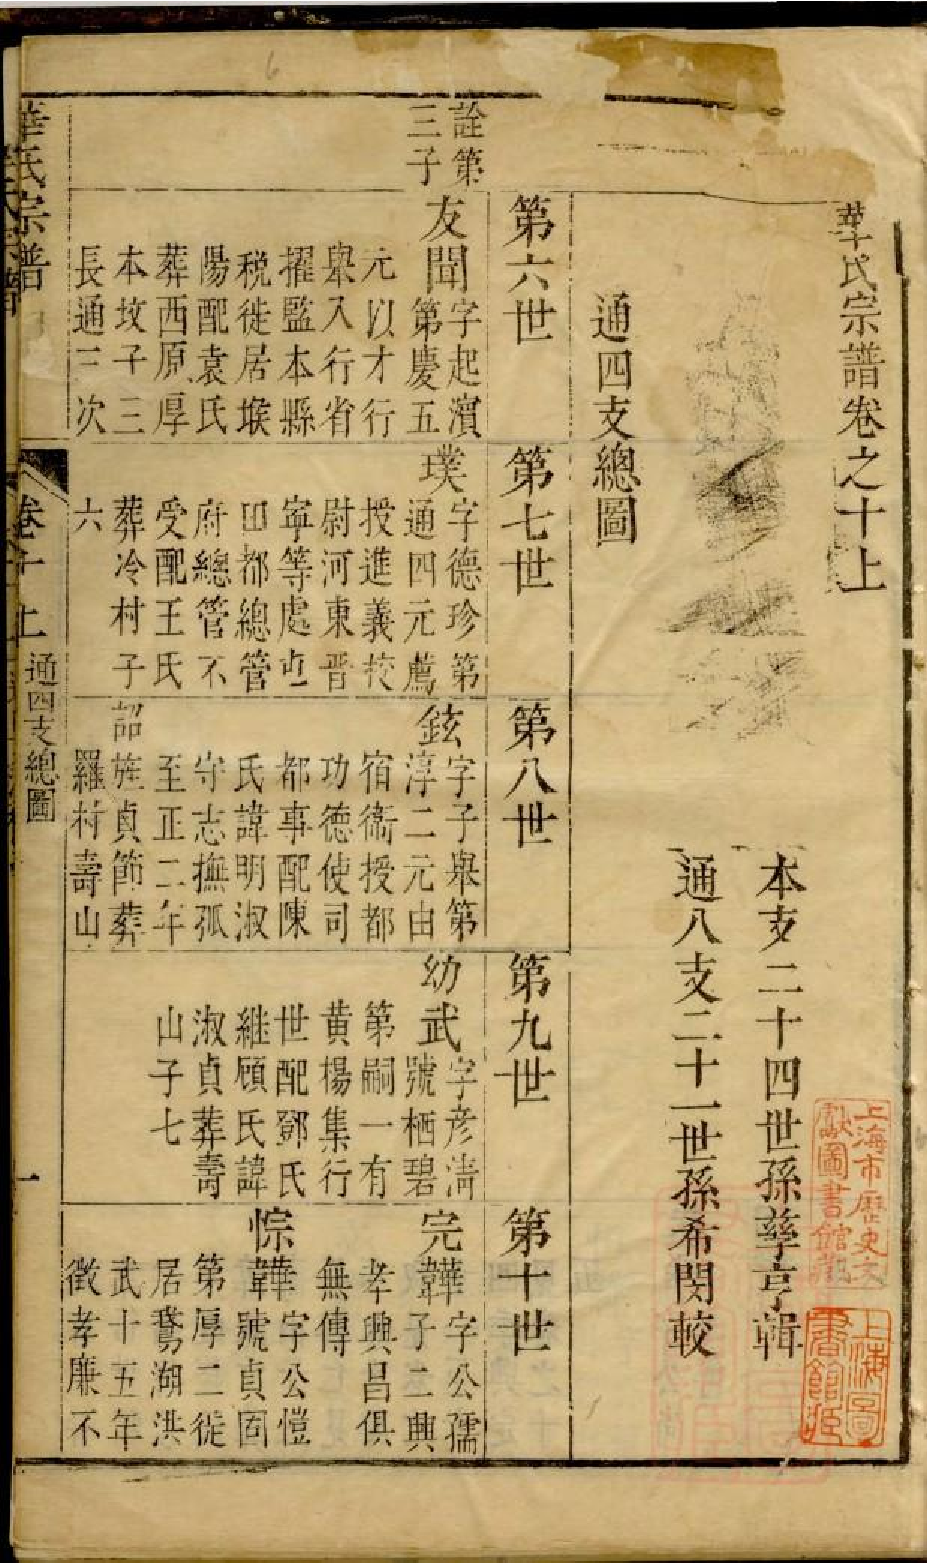 華氏宗譜卷之十上
本支二十四世孫孳亨輯
通八支二十一世孫希閔較
通四支總圖
第六世
詮第
三子
友聞
字起濱
第慶五
元以才行
舉入行省
擢監本縣
稅徙居堠
陽配袁氏
葬西原厚
本坟子三
長通三次
第七世
璞
字德珍第
通四元薦
授進義校
尉河東晉
寧等處屯
田都總管
府總管不
受配王氏
葬冷村子
六
第八世
鉉
字子舉第
淳二元由
宿衞授都
功德使司
都事配陳
氏諱明淑
守志撫孤
至正二年
詔旌貞節葬
羅村壽山
第九世
幼武
字彥淸
號栖碧
第嗣一有
黄楊集行
世配鄧氏
継顧氏諱
淑貞葬壽
山子七
第十世
完
字公孺
子二興
孝興昌俱
無傳
悰韡
字公愷
號貞固
第厚二徙
居鵞湖洪
武十五年
徵孝廉不
華氏宗譜
卷十上
通四支總圖
一
上海市歷史文
獻圖書館藏
上海圖
書館藏